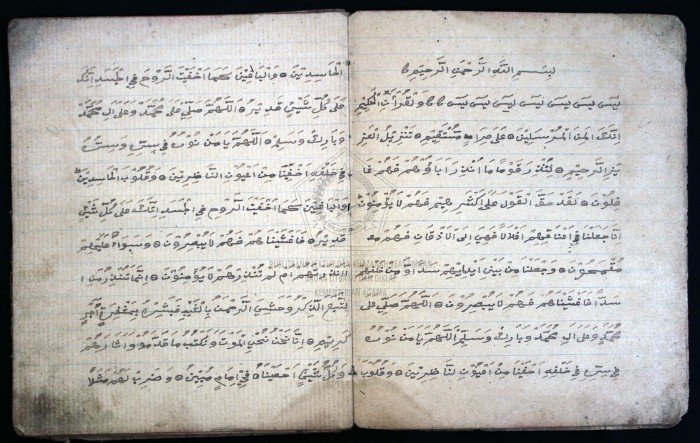 بسم الله الرحمن الرحيم
يس يس يس يس يس يس يس والقرآن الحكيم
انك لمن المرسلين على صراط مستقيم تنزيل العز
يز الرحيم لتنذر قوما ما انذر اباؤهم فهم غا
فلون لقد حق القول على اكثرهم فهم لا يؤمنون
انا جعلنا في اعناقهم اغلالا فهي الى الاذقان فهم
مقمحون وجعلنا من بين ايديهم سدا ومن خلفهم
سدا فاغشيناهم فهم لا يبصرون اللهم صل على
محمد وعلى ال محمد وبارك وسلم اللهم يا من نوره
في سره في خلقه اخفنا من اعين الناظرين وقلوب
الحاسدين والباغين كما اخفيت الروح في الجسد انك
على كل شيئ قدير اللهم صلي على محمد وعلى ال محمد
وبارك وسلم اللهم يا من نوره في سره وسره
في خلقه اخفينا من اعيون الناظرين وقلوب الحاسدين
والباغين كما اخفيت الروح في الجسد انك على كل شيئ
قدير فاغشيناهم فهم لا يبصرون وسواء عليهم
ءانذرتهم ام لم تنذرهم لا يؤمنون انما تنذر من ا
تبع الذكر وخشي الرحمن بالغيب فبشره بمغفرة واجر
كريم انا نحن نحي الموتى ونكتب ما قدموا واثارهم
وكل شيئ احصيناه في امام مبين واضرب لهم مثلا